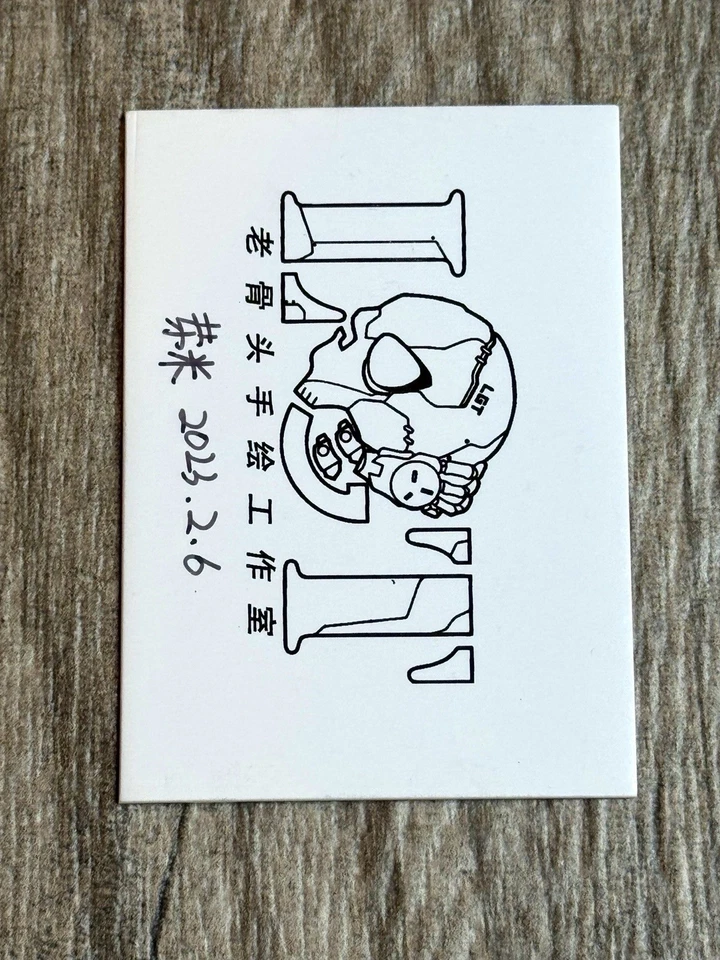 LGT
LGT
老骨头手绘工作室
芽米 2023.2.6